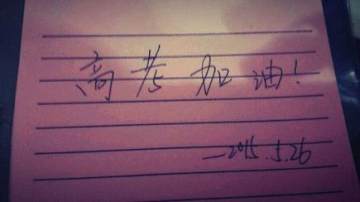 高考加油!
—2015.5.26